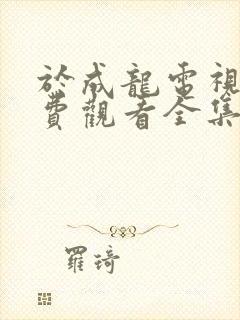 於成龍電視
費觀看全集
羅琦